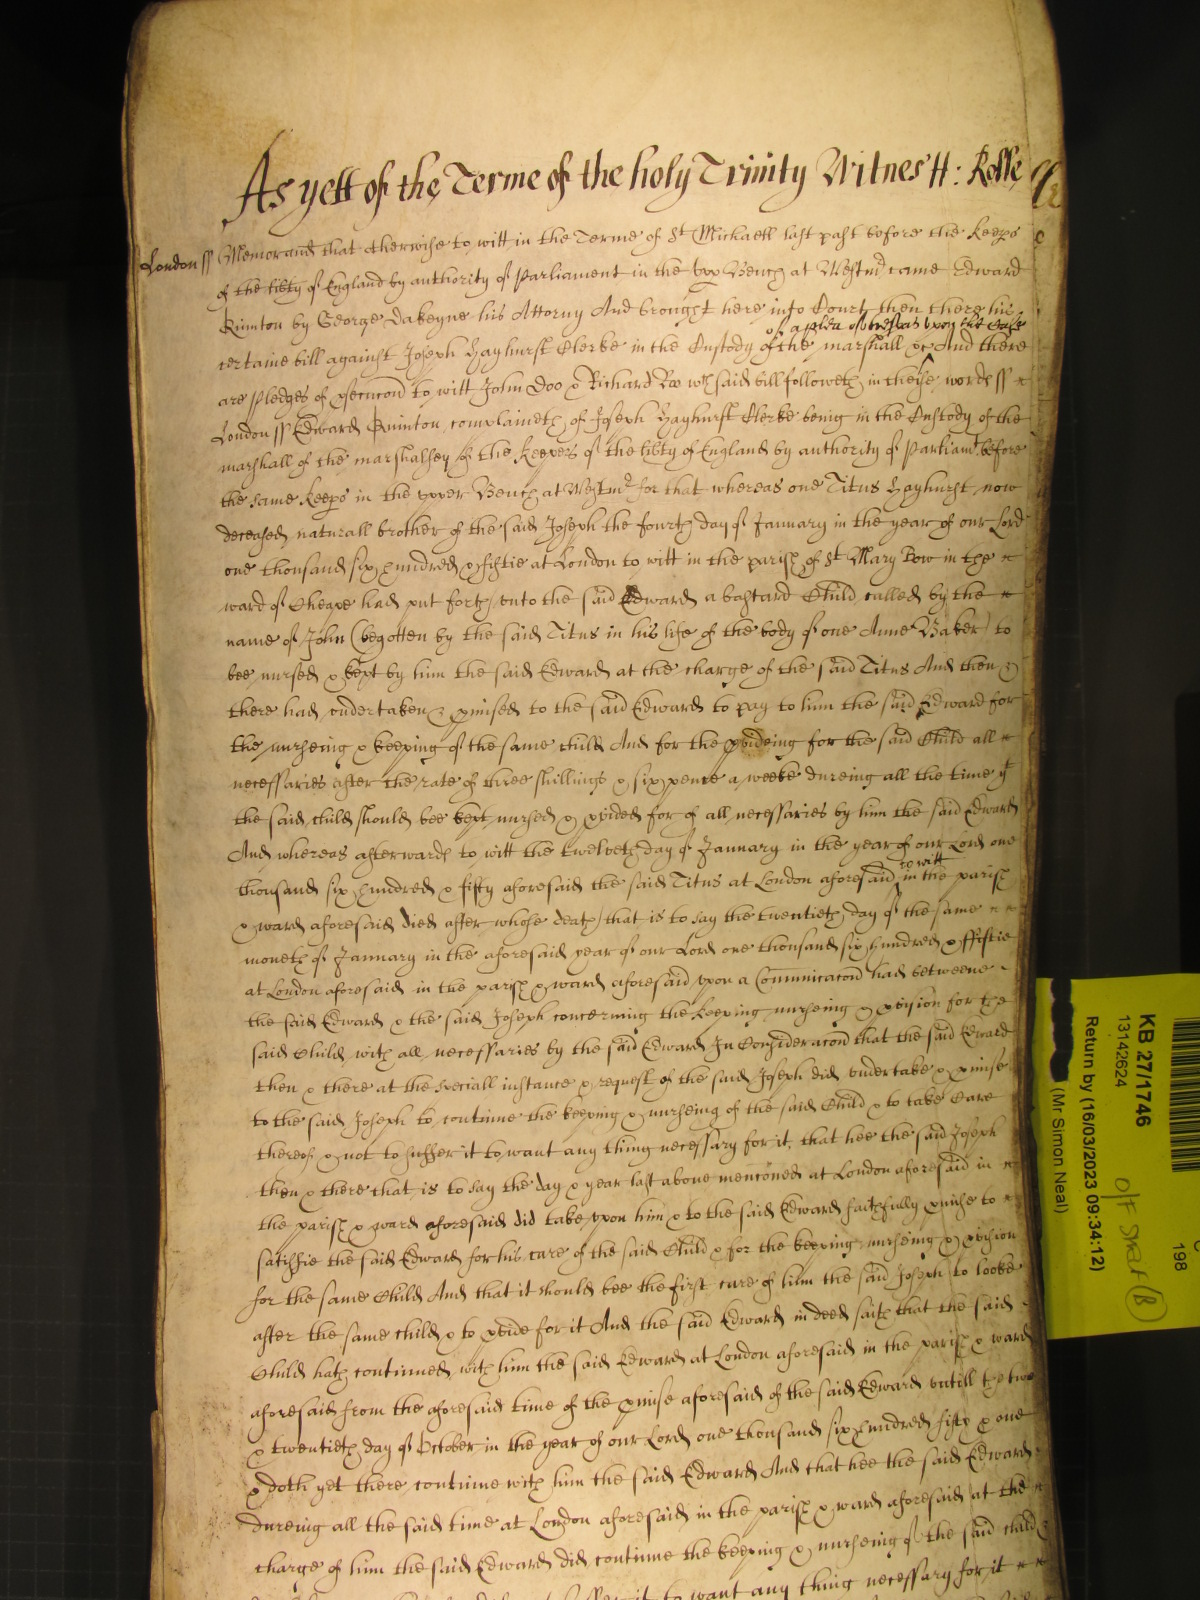 As yett of the Terme of the holy Trinity Witnes H: Rolle
London ss Memorand that otherwise to witt in the Terme of St Michaell last past before the Keeps
of the libty of England by authority of Parliament in the upp Bench at Westmr came Edward
Quinton by George Dakeyne his Attorny And brought here into Court then there his
of a plea of trespas upon the Case
certaine bill against Joseph Hayhurst Clerke in the Custody of the marshall &c And there
are pledges of psecucon to witt John Doo & Richard Roo wch said bill followeth in theise words ss
London ss Edward Quinton complaineth of Joseph Hayhurst Clerke being in the Custody of the
marshall of the marshalsey of the Keepers of the libty of England by authority of Parliamt before
the same Keeps in the upper Bench at Westmr for that whereas one Titus Hayhurst now
deceased naturall brother of the said Joseph the fourth day of January in the year of our Lord
one thousand six hundred & fiftie at London to witt in the parish of St Mary Bow in the
ward of Cheape had put forth unto the said Edward a bastard Child called by the
name of John (begotten by the said Titus in his life of the body of one Anne Baker) to
bee nursed & kept by him the said Edward at the charge of the said Titus And then &
there had undertaken & pmised to the said Edward to pay to him the said Edward for
the nurseing & keeping of the same child And for the pvideing for the said Child all
necessaries after the rate of three shillings & six pence a weeke dureing all the time yt
the said child should bee kept nursed & pvided for of all necessaries by him the said Edward
And whereas afterwards to witt the twelveth day of January in the year of our Lord one
to witt
thousand six hundred & fifty aforesaid the said Titus at London aforesaid in the parish
& ward aforesaid died after whose death that is to say the twentieth day of the same
moneth of January in the aforesaid year of our Lord one thousand six hundred & fiftie
at London aforesaid in the parish & ward aforesaid upon a Comunicacon had betweene
the said Edward & the said Joseph concerning the keeping nurseing & pvision for the
said Child with all necessaries by the said Edward In Consideracon that the said Edward
then & there at the speciall instance & request of the said Joseph did undertake & pmise
to the said Joseph to continue the keeping & nurseing of the said Child & to take Care
thereof & not to suffer it to want any thing necessary for it, that hee the said Joseph
then & there that is to say the day & year last above menconed at London aforesaid in
the parish & ward aforesaid did take upon him & to the said Edward faithfully pmise to
satisfie the said Edward for his care of the said Child & for the keeping nurseing & pvision
for the same Child And that it should bee the first care of him the said Joseph to looke
after the same child & to pvide for it And the said Edward in deed saith that the said
Child hath continued with him the said Edward at London aforesaid in the parish & ward
aforesaid from the aforesaid time of the pmise aforesaid of the said Edward untill the two
& twentieth day of October in the year of our Lord one thousand six hundred fifty & one
& doth yet there continue with him the said Edward And that hee the said Edward
dureing all the said time at London aforesaid in the parish & ward aforesaid at the
charge of him the said Edward did continue the keeping & nurseing of the said child
to want any thing necessary for it
KB 27/1746
13142624
Return by (16/03/2023 09:34:12)
(Mr Simon Neal)
198